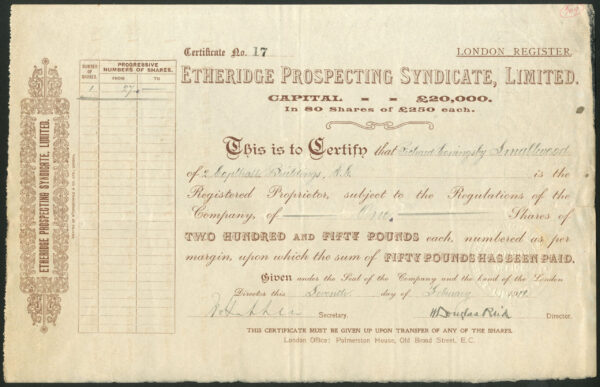 Certificate No. 17
LONDON REGISTER.
ETHERIDGE PROSPECTING SYNDICATE, LIMITED.
CAPITAL - - £20,000.
In 80 Shares of £250 each.
NUMBER OF SHARES.
PROGRESSIVE NUMBERS OF SHARES.
FROM TO
1
ETHERIDGE PROSPECTING SYNDICATE, LIMITED.
This is to Certify that Coningsby Smallwood
of 2 Copthall Buildings, E.C. is the
Registered Proprietor, subject to the Regulations of the
Company, of One Shares of
TWO HUNDRED AND FIFTY POUNDS each, numbered as per
margin, upon which the sum of FIFTY POUNDS HAS BEEN PAID.
Given under the Seal of the Company and the hand of the London
Director this Seventh day of February
Secretary. Douglas Reid Director.
THIS CERTIFICATE MUST BE GIVEN UP UPON TRANSFER OF ANY OF THE SHARES.
London Office: Palmerston House, Old Broad Street, E.C.